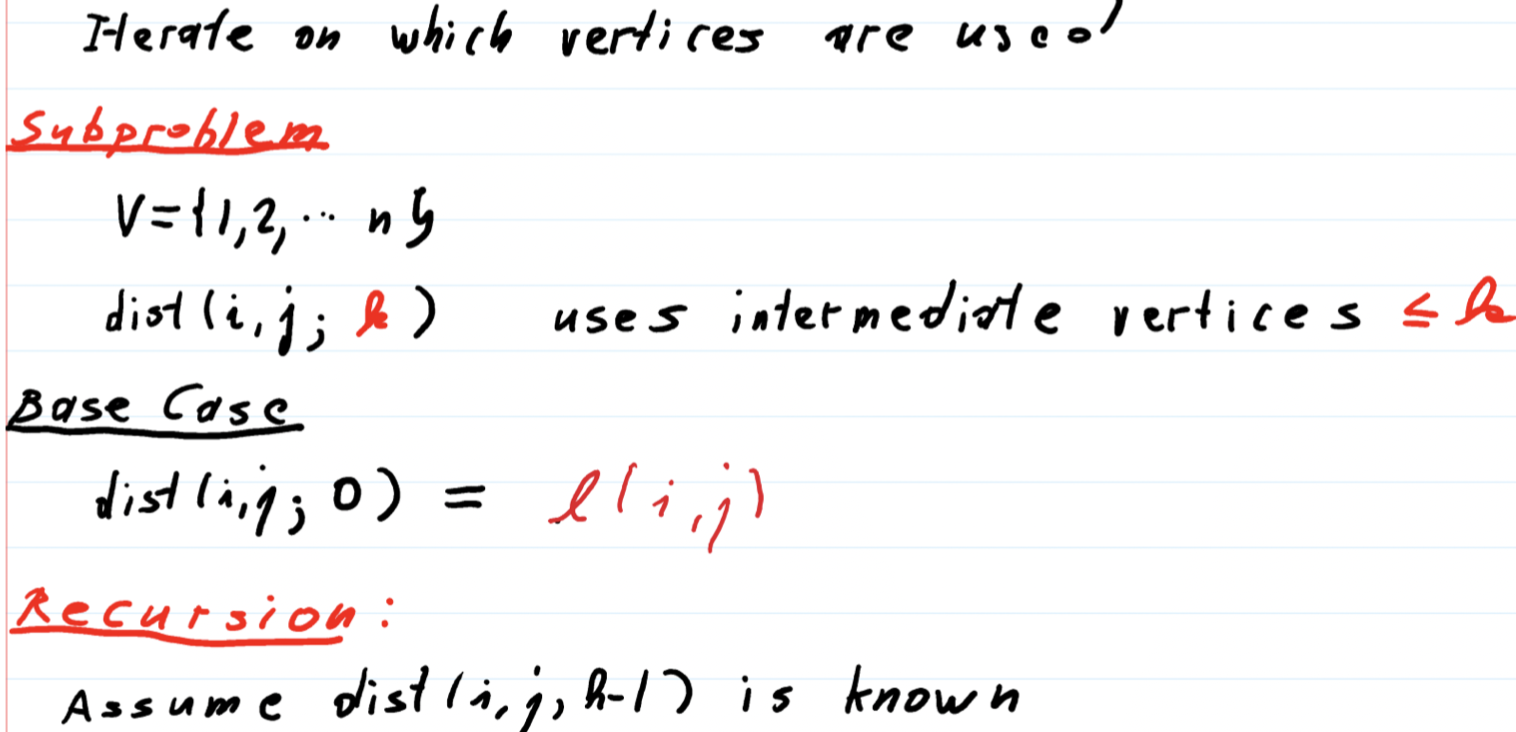 Iterate on which vertices are used
Subproblem
V={1,2,... n}
dist(i,j; k) uses intermediate vertices ≤ k
Base Case
dist(i,j; 0) = l(i,j)
Recursion:
Assume dist(i,j, k-1) is known